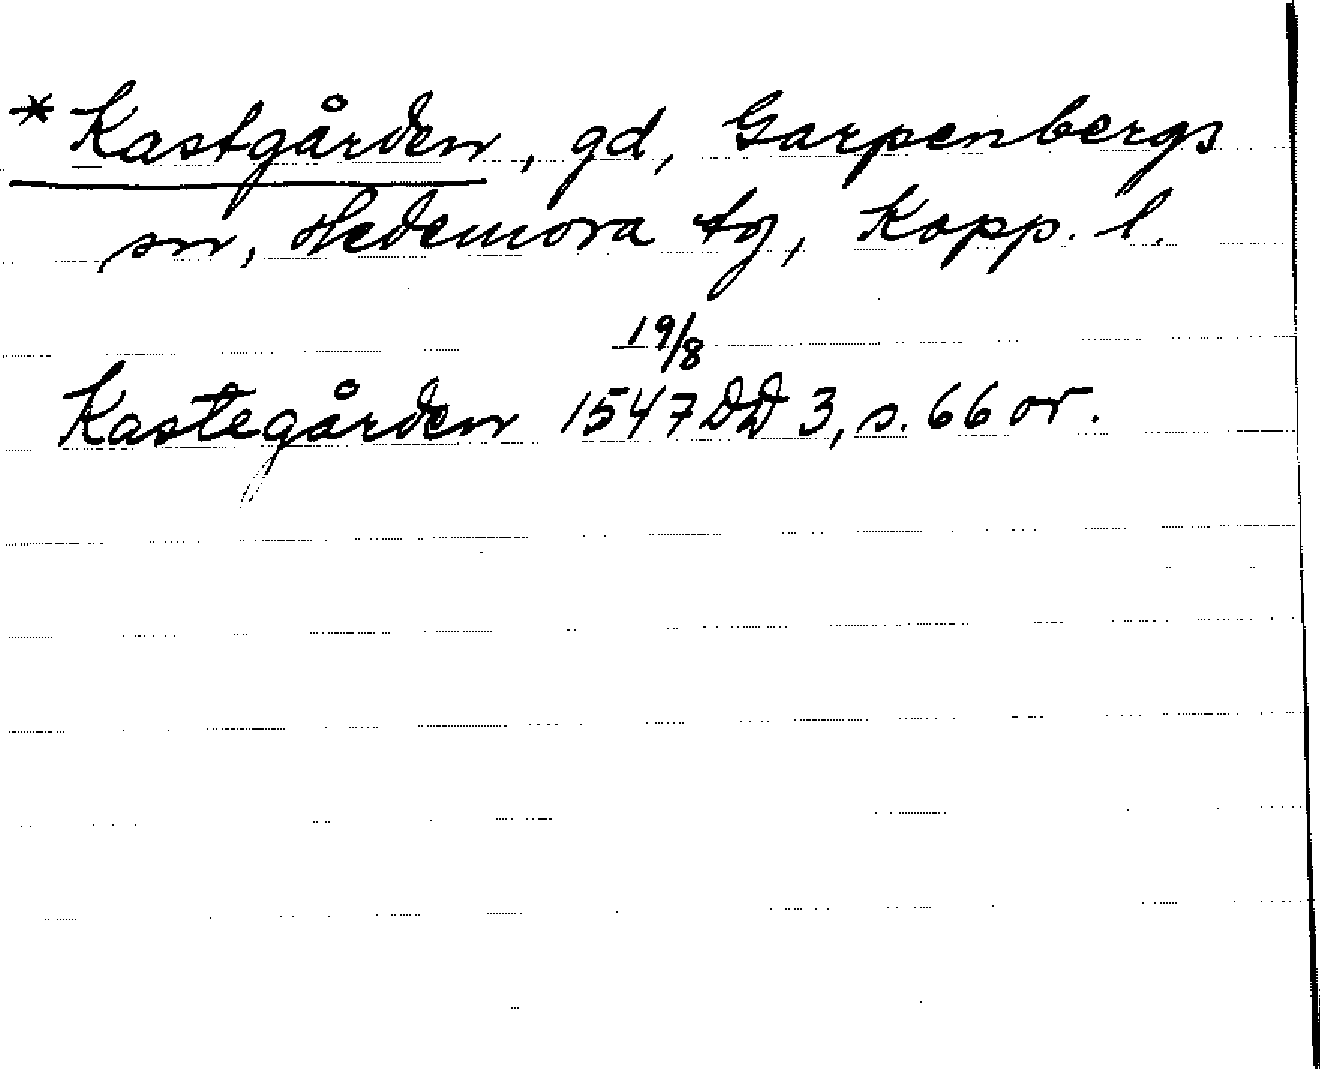 *Kastgården, gd, Garpenbergs
sn, Hedemora tg, Kopp. l.
19/8
Kastegården 1547 DD 3, s. 66 or.